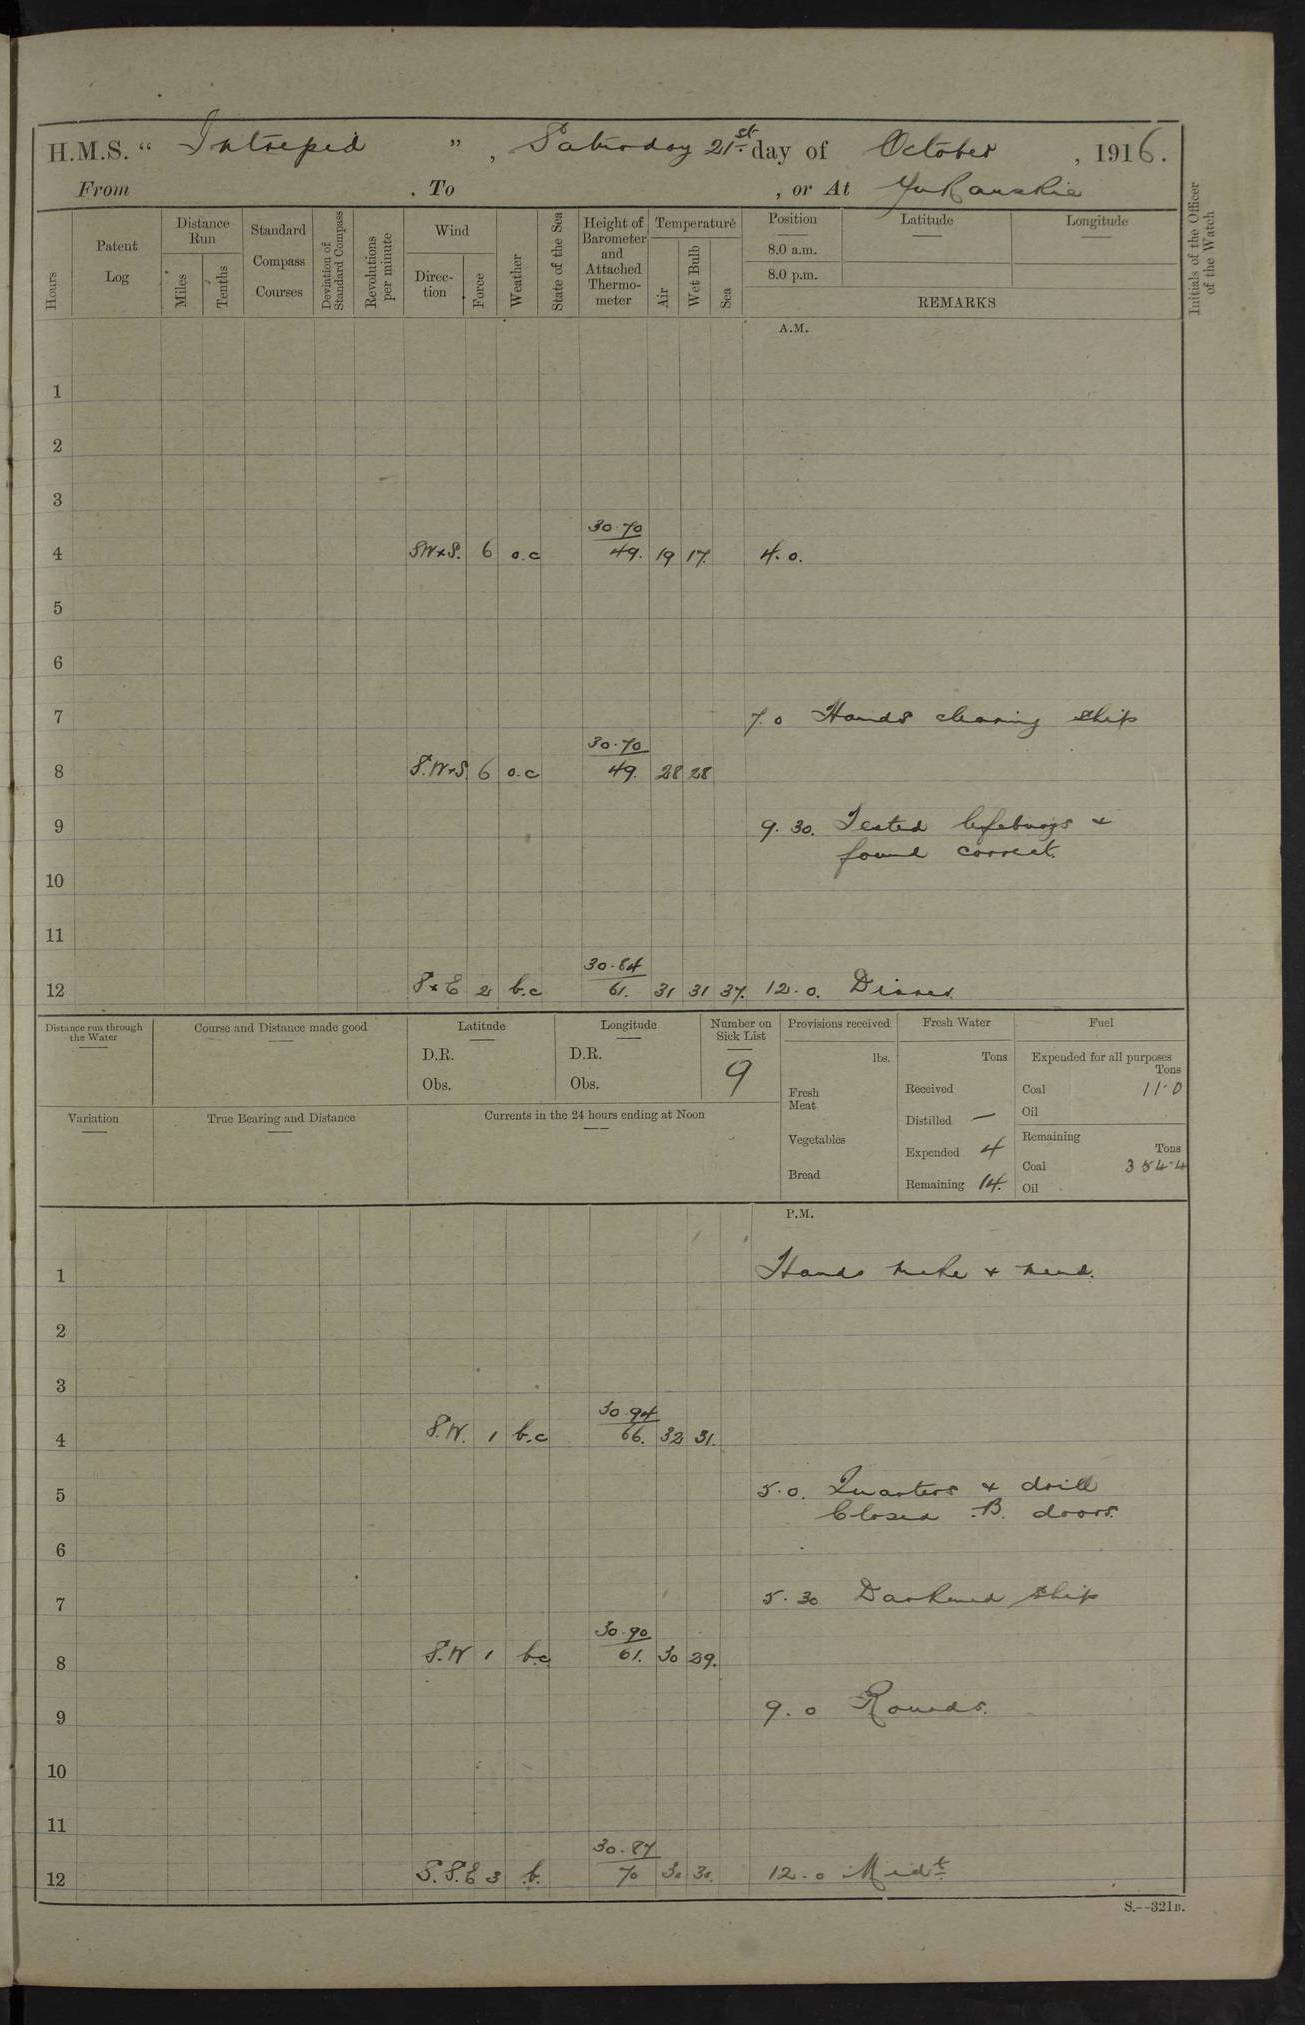 H.M.S. “ Intrepid ”, Saturday 21st day of October, 1916.
From . To , or At Yukanskie
Hours
Patent Log
Distance Run
Miles
Tenths
Standard Compass Courses
Deviation of Standard Compass
Revolutions per minute
Wind
Direction
Force
Weather
State of the Sea
Height of Barometer and Attached Thermometer
Temperature
Air
Wet Bulb
Sea
Position
8.0 a.m.
8.0 p.m.
Latitude
Longitude
REMARKS
Initials of the Officer of the Watch
A.M.
1
2
3
30.70
4 SWxS. 6 o.c 49. 19 17. 4.0.
5
6
7 7.0 Hands cleaning ship
30.70
8 S.WxS. 6 o.c 49. 28 28
9 9.30. Tested lifebuoys &
found correct.
10
11
30.84
12 SxE 2 b.c 61. 31 31 37. 12.0. Dinner.
Distance run through the Water
Course and Distance made good
Latitude
D.R.
Obs.
Longitude
D.R.
Obs.
Number on Sick List
9
Provisions received
lbs.
Fresh Meat
Vegetables
Bread
Fresh Water
Tons
Received
Distilled —
Expended 4
Remaining 14.
Fuel
Expended for all purposes
Tons
Coal 11.0
Oil
Remaining
Tons
Coal 354.4
Oil
Variation
True Bearing and Distance
Currents in the 24 hours ending at Noon
P.M.
1 Hands make & mend.
2
3
30.94
4 S.W. 1 b.c 66. 32 31.
5 5.0. Quarters & drill
Closed B. doors.
6
7 5.30 Darkened ship
30.90
8 S.W 1 b.c 61. 30 29.
9 9.0 Rounds.
10
11
30.87
12 S.S.E 3 b. 70 30 30. 12.0 Midt
S.--321B.